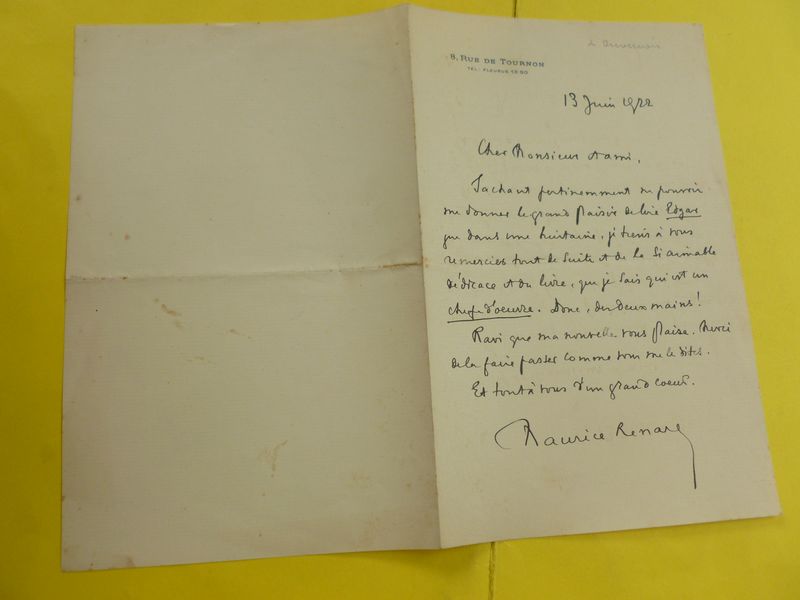 à Duvernois
8, Rue de Tournon
Tél. Fleurus 15 90
13 Juin 1922
Cher Monsieur et ami,
Sachant pertinemment ne pouvoir
me donner le grand plaisir de lire Edgar
que dans une huitaine, je tiens à vous
remercier tout de suite et de la si aimable
dédicace et du livre, que je sais qui est un
chef d'oeuvre. Donc, des deux mains !
Ravi que ma nouvelle vous plaise. Merci
de la faire passer comme vous me le dites.
Et tout à vous d'un grand coeur.
Maurice Renard